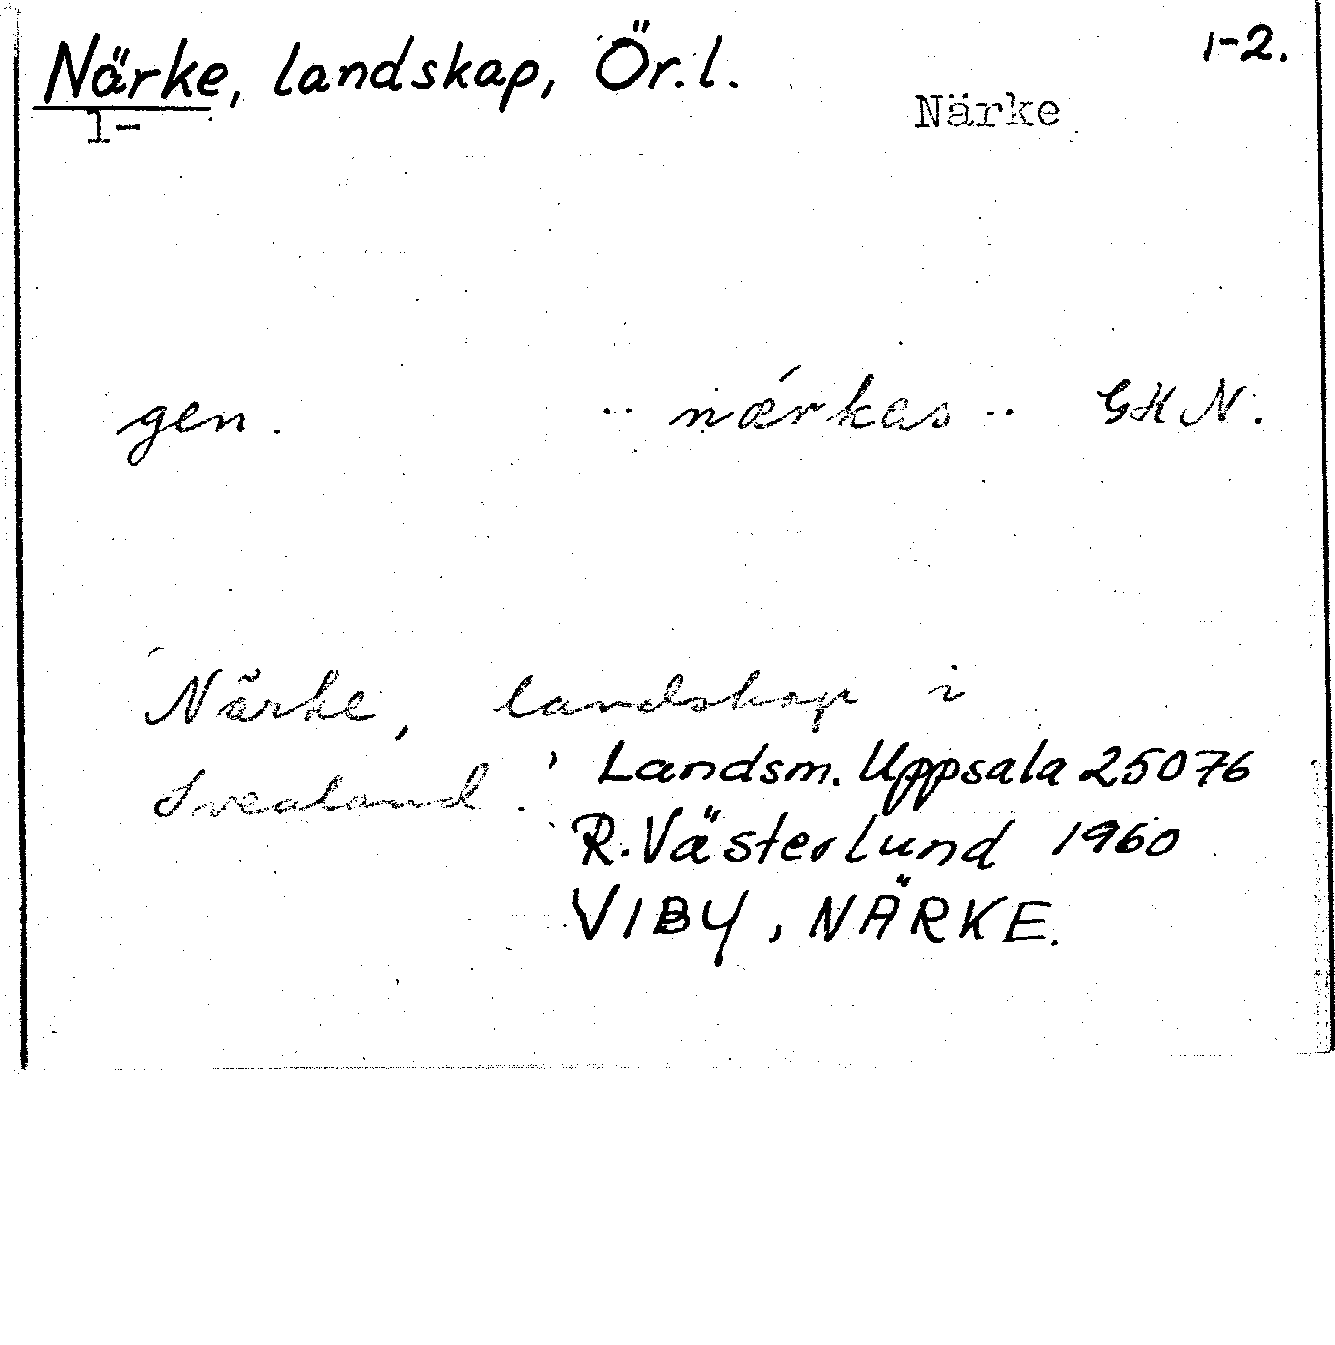 Närke, landskap, Ör.l. 1-2.
1- Närke
gen. ·· nǽrkas ·· GKN.
'Närke, landskap i
Svealand.' Landsm. Uppsala 25076
R. Västerlund 1960
VIBY, NÄRKE.